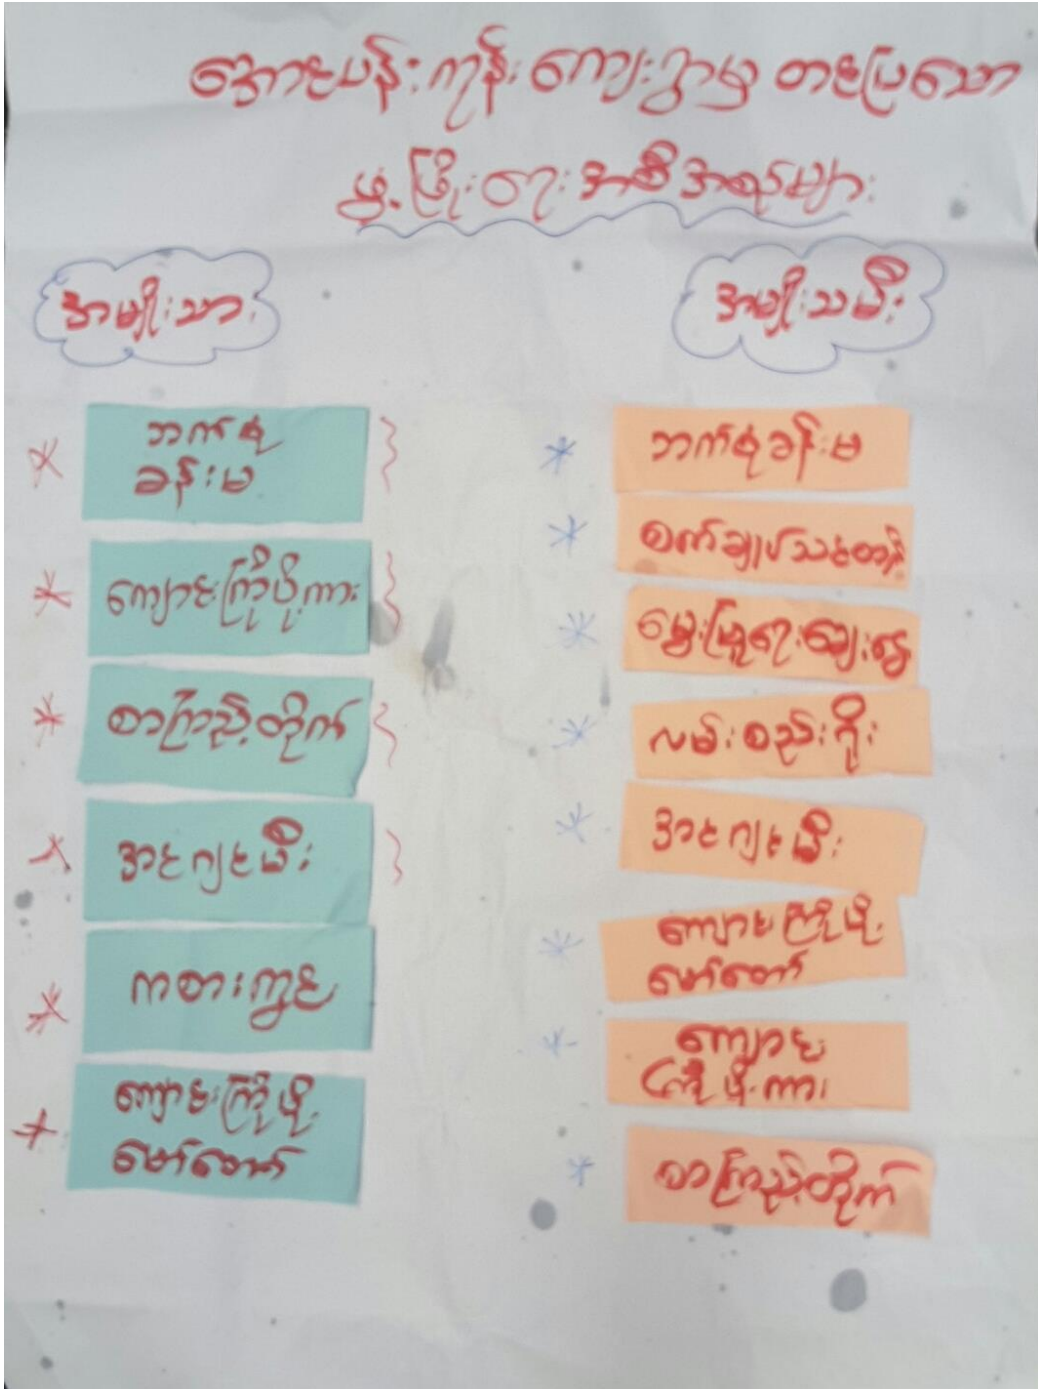 အောင်ပန်းကုန်းကျေးရွာမှ တင်ပြသော
ဖွံ့ဖြိုးရေးအစီအစဉ်များ
အမျိုးသား
ဘက်စုံ
ခန်းမ
ကျောင်းကြိုပို့ကား
စာကြည့်တိုက်
အင်ဂျင်မီး
ကစားကွင်း
ကျောင်းကြိုပို့
မော်တော်
အမျိုးသမီး
ဘက်စုံခန်းမ
စက်ချုပ်သင်တန်း
မွေးမြူရေးချေးငွေ
လမ်းစည်းရိုး
အင်ဂျင်မီး
ကျောင်းကြိုပို့
မော်တော်
ကျောင်း
ကြိုပို့ကား
စာကြည့်တိုက်